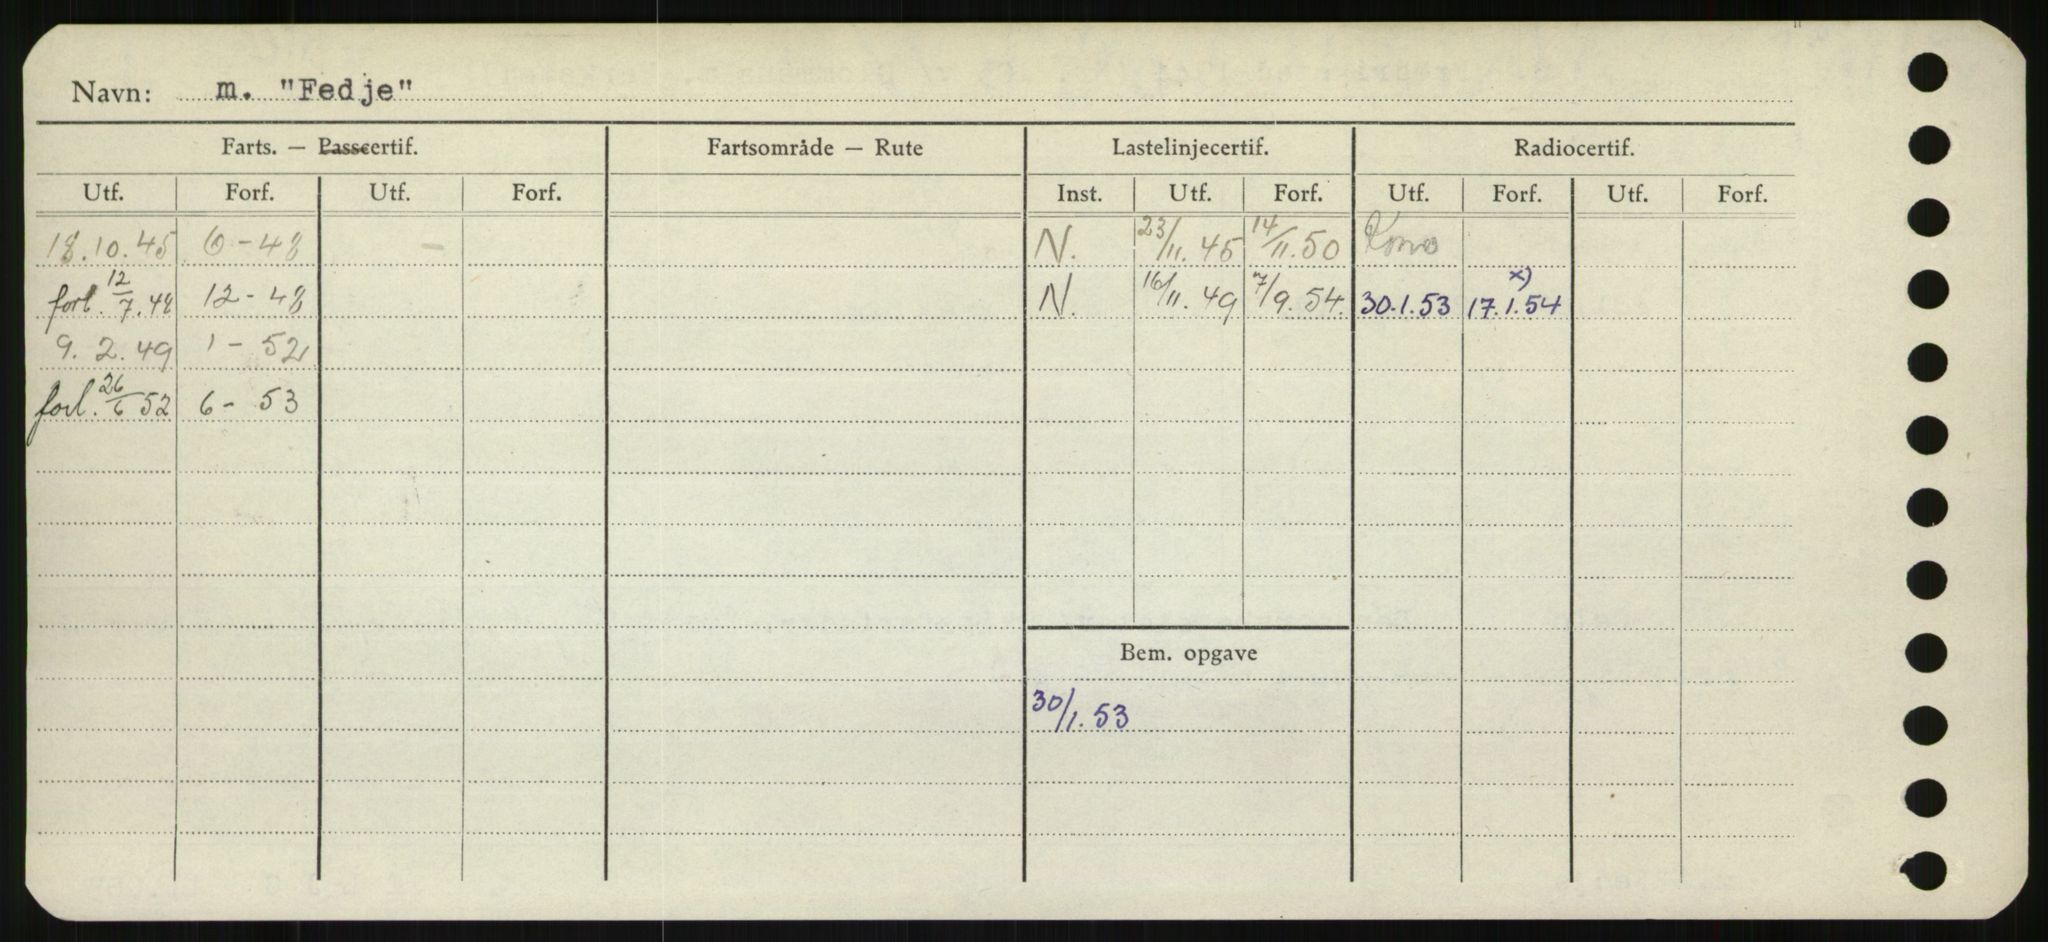 Navn: m. "Fedje"
Farts. — Passcertif. Fartsområde — Rute Lastelinjecertif. Radiocertif.
Utf. Forf. Utf. Forf. Inst. Utf. Forf. Utf. Forf. Utf. Forf.
18.10.45 6-48 – N. 23/11.45 14/11.50
forl. 12/7.48 12-48 N. 16/11.49 7/9.54. 30.1.53 17.1.54 x)
9.2.49 1-52
forl. 26/6 52 6-53
Bem. opgave
30/1.53